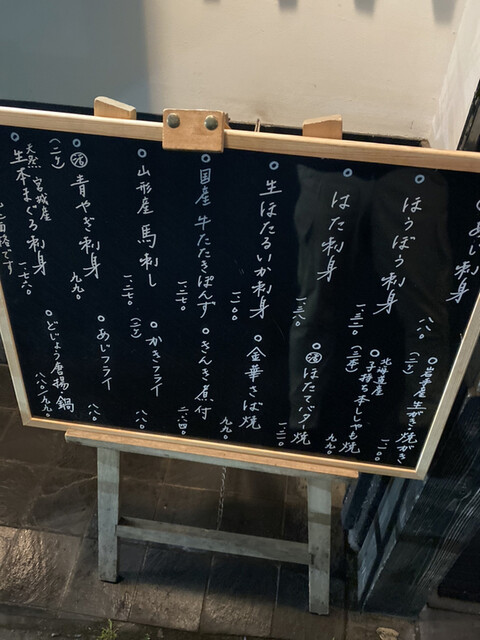 あじ刺身
ほうぼう刺身 一三二〇
はた刺身 一三八〇
生ほたるいか刺身 一二〇〇
国産 牛たたきぽんず 一二七〇
山形産 馬刺し 一二七〇
活 青やぎ刺身 九九〇
(二ケ)
天然 宮城産
生本まぐろ刺身 一七六〇
岩手産 生がき・焼がき
(二ケ) 一一〇〇
北海道産
子持ち本ししゃも焼
(三本) 九九〇
活 ほたてバター焼 一三二〇
金華さば焼 九九〇
きんき煮付 二六四〇
かきフライ
(二ケ) 八八〇
あじフライ 八八〇
どじょう唐揚 鍋
八八〇 九九〇